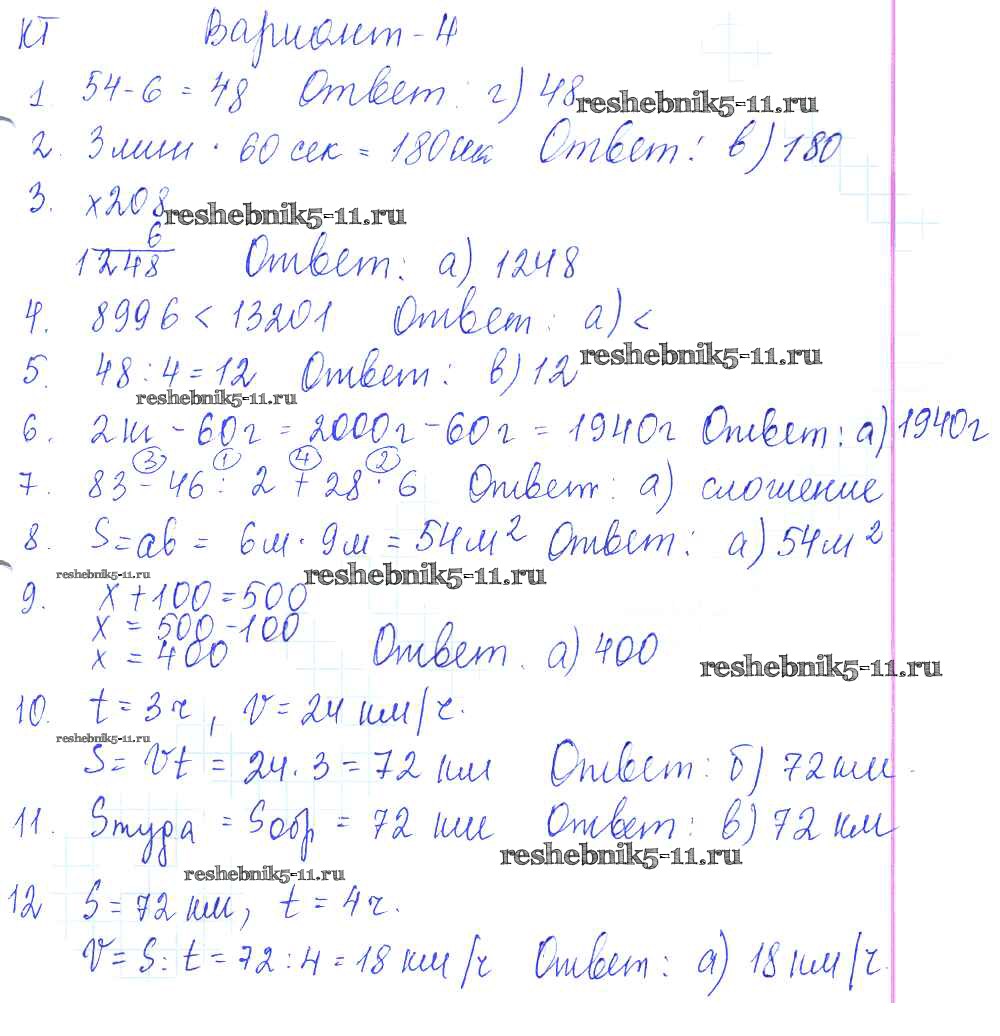 КТ Вариант-4
1. 54-6 = 48 Ответ: г) 48
reshebnik5-11.ru
2. 3 мин · 60 сек = 180 сек Ответ: в) 180
3. x208
reshebnik5-11.ru
6
1248 Ответ: а) 1248
4. 8996 < 13201 Ответ: а) <
reshebnik5-11.ru
5. 48 : 4 = 12 Ответ: в) 12
reshebnik5-11.ru
6. 2 кг - 60 г = 2000 г - 60 г = 1940 г Ответ: а) 1940 г
3 1 4 2
7. 83 - 46 : 2 + 28 · 6 Ответ: а) сложение
8. S = ab = 6 м · 9 м = 54 м² Ответ: а) 54 м²
reshebnik5-11.ru reshebnik5-11.ru
9. x + 100 = 500
x = 500 - 100
x = 400 Ответ. а) 400
reshebnik5-11.ru
10. t = 3 ч, v = 24 км/ч.
reshebnik5-11.ru
S = vt = 24 · 3 = 72 км Ответ: б) 72 км.
11. Sтуда = Sобр = 72 км Ответ: в) 72 км
reshebnik5-11.ru
reshebnik5-11.ru
12 S = 72 км, t = 4 ч.
v = S : t = 72 : 4 = 18 км/ч Ответ: а) 18 км/ч.